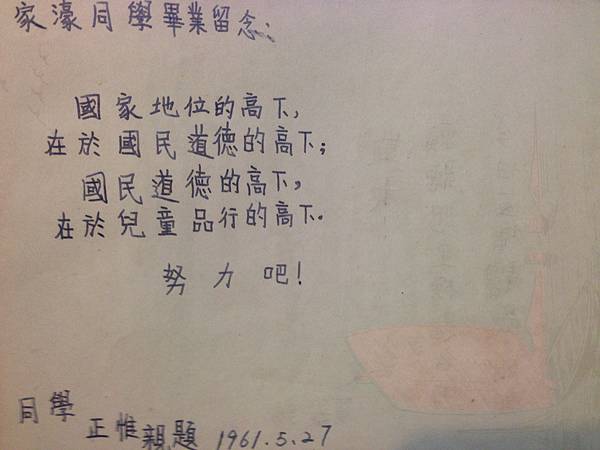 家濠同學畢業留念：
國家地位的高下，
在於國民道德的高下；
國民道德的高下，
在於兒童品行的高下．
努力吧！
同學
正惟親題 1961.5.27